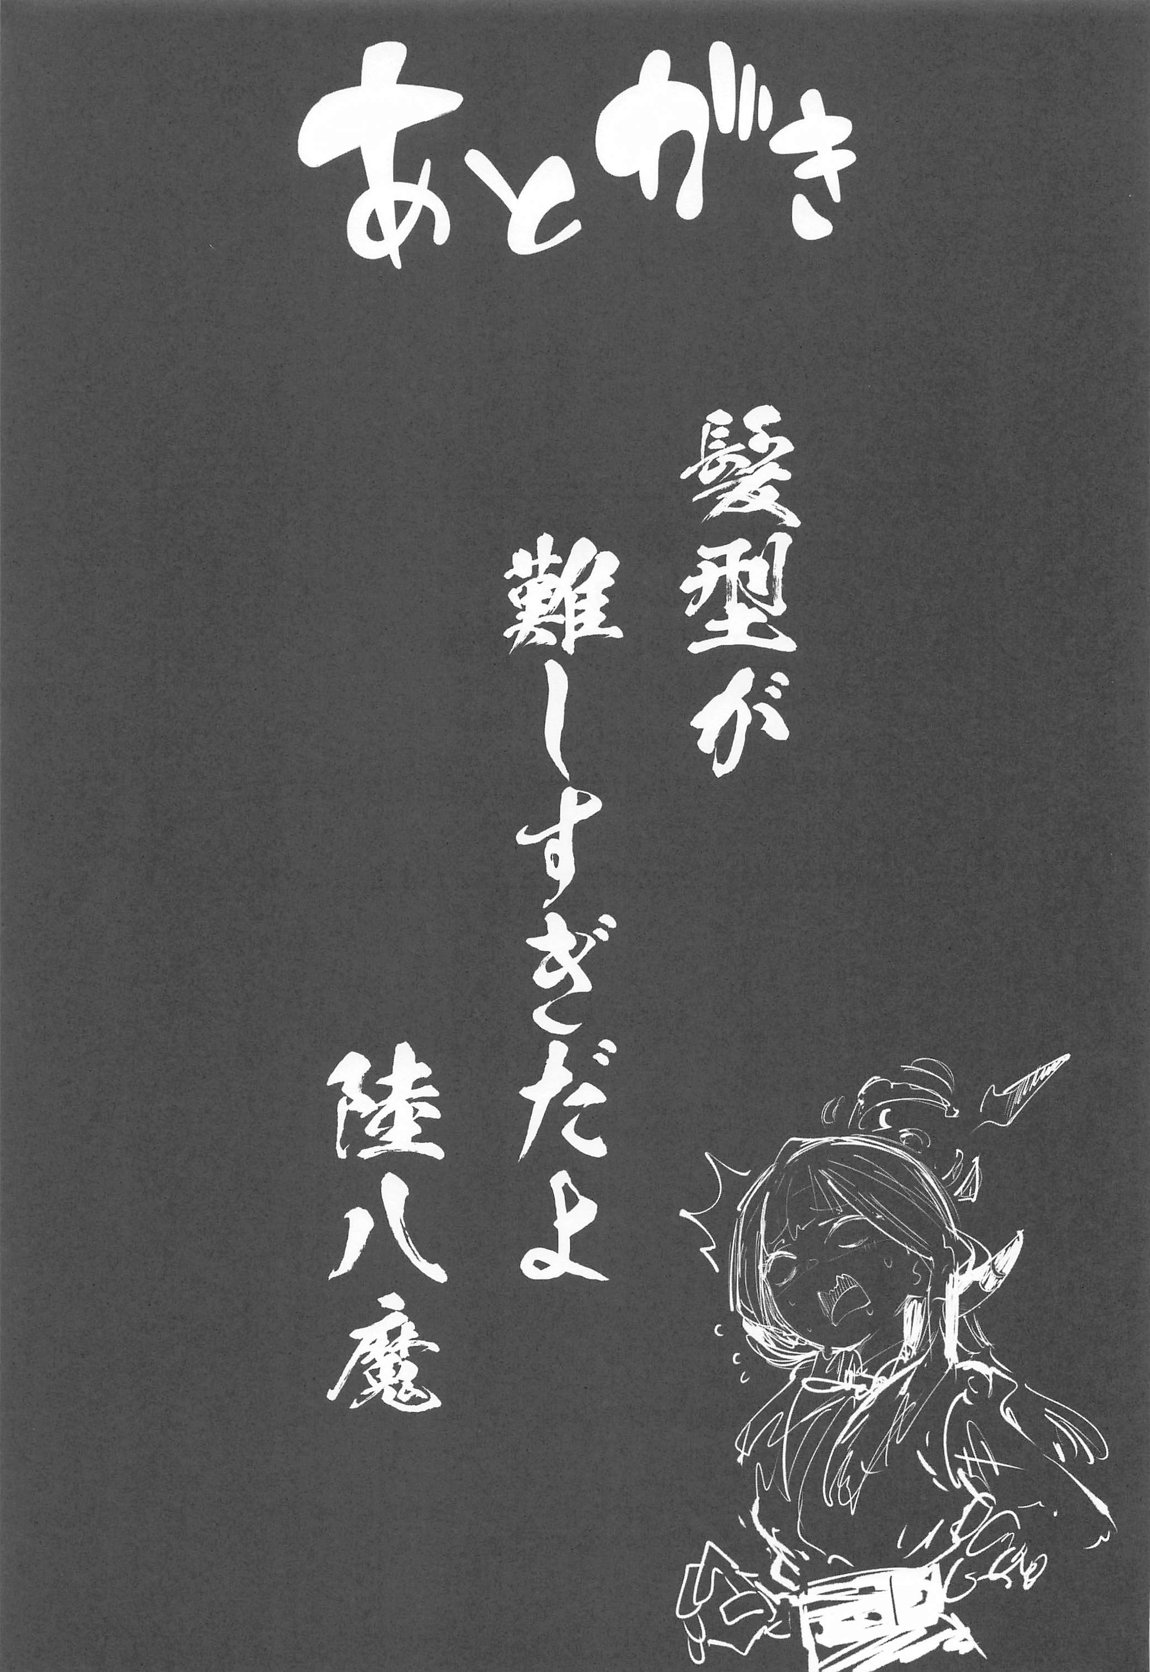 あとがき
髪型が
難しすぎだよ
陸八魔